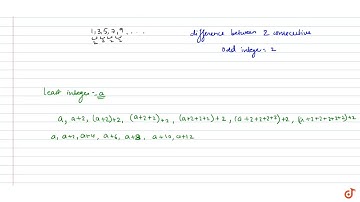 1,3,5,7,9, . . . .
difference between 2 consecutive
odd integer = 2
least integer = a
a, a+2, (a+2)+2, (a+2+2)+2, (a+2+2+2)+2, (a+2+2+2+2)+2, (a+2+2+2+2+2)+2
a, a+2, a+4, a+6, a+8, a+10, a+12